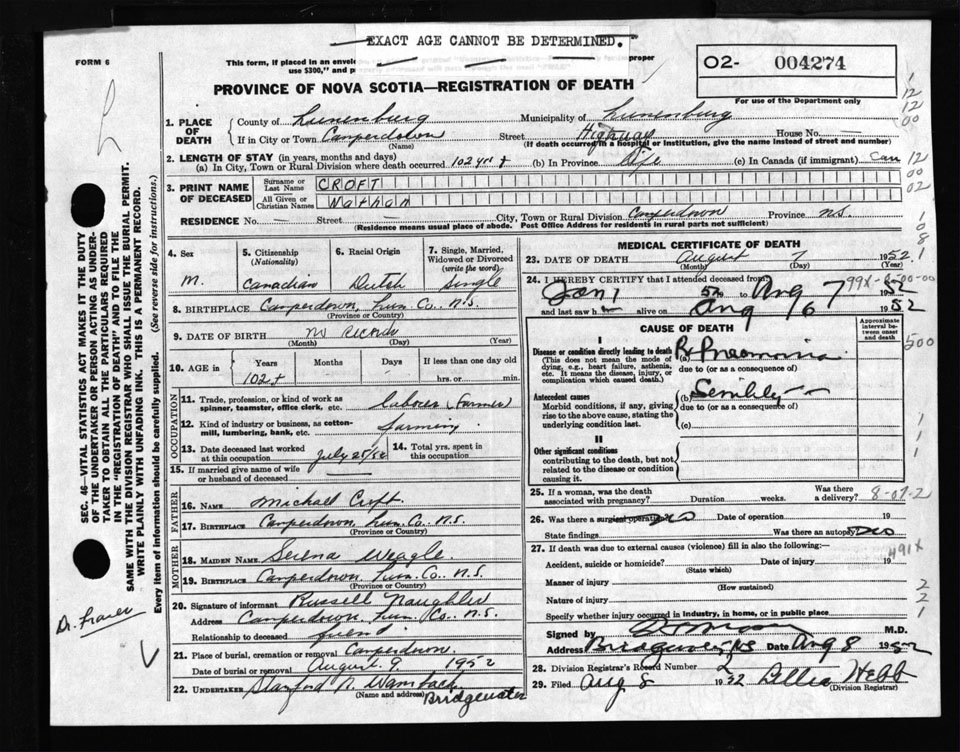 EXACT AGE CANNOT BE DETERMINED.
FORM 6
This form, if placed in an envelo proper
use $300," and p
02- 004274
PROVINCE OF NOVA SCOTIA—REGISTRATION OF DEATH
For use of the Department only
1. PLACE OF DEATH
County of Lunenburg Municipality of Lunenburg
If in City or Town Camperdown Street Highway House No. —
(Name) (If death occurred in a hospital or institution, give the name instead of street and number)
2. LENGTH OF STAY (in years, months and days)
(a) In City, Town or Rural Division where death occurred 102 yrs + (b) In Province Life (c) In Canada (if immigrant) Can
3. PRINT NAME OF DECEASED
Surname or Last Name CROFT
All Given or Christian Names Nathan
RESIDENCE No. — Street — City, Town or Rural Division Camperdown Province N.S.
(Residence means usual place of abode. Post Office Address for residents in rural parts not sufficient)
4. Sex
M.
5. Citizenship (Nationality)
Canadian
6. Racial Origin
Dutch
7. Single, Married, Widowed or Divorced (write the word)
Single
8. BIRTHPLACE Camperdown, Lun. Co. N.S.
(Province or Country)
9. DATE OF BIRTH no records
(Month) (Day) (Year)
10. AGE in
Years Months Days If less than one day old
102+ hrs. or min.
OCCUPATION
11. Trade, profession, or kind of work as spinner, teamster, office clerk, etc. labourer (Farmer)
12. Kind of industry or business, as cotton-mill, lumbering, bank, etc. farming
13. Date deceased last worked at this occupation July 25/52
14. Total yrs. spent in this occupation
15. If married give name of wife or husband of deceased —
FATHER
16. NAME Michael Croft.
17. BIRTHPLACE Camperdown, Lun. Co. N.S.
(Province or Country)
MOTHER
18. MAIDEN NAME Serena Weagle.
19. BIRTHPLACE Camperdown, Lun. Co. N.S.
(Province or Country)
20. Signature of informant Russell Naugler
Address Camperdown, Lun. Co. N.S.
Relationship to deceased friend
21. Place of burial, cremation or removal Camperdown.
Date of burial or removal August 9 1952
22. UNDERTAKER Stanford N. Wambach
(Name and address) Bridgewater
MEDICAL CERTIFICATE OF DEATH
23. DATE OF DEATH August 7 1952
(Month) (Day) (Year)
24. I HEREBY CERTIFY that I attended deceased from
Jan 1 52 to Aug 7 1952
and last saw h alive on Aug 6 1952
CAUSE OF DEATH
Approximate interval between onset and death
I
Disease or condition directly leading to death (a) Pneumonia
(This does not mean the mode of dying, e.g., heart failure, asthenia, etc. It means the disease, injury, or complication which caused death.)
due to (or as a consequence of)
Antecedent causes (b) Senility
Morbid conditions, if any, giving rise to the above cause, stating the underlying condition last.
due to (or as a consequence of)
(c)
II
Other significant conditions
contributing to the death, but not related to the disease or condition causing it.
25. If a woman, was the death associated with pregnancy? Duration weeks. Was there a delivery? 8-07-2
26. Was there a surgical operation? No Date of operation 19
State findings Was there an autopsy? No
27. If death was due to external causes (violence) fill in also the following:—
491X
Accident, suicide or homicide? Date of injury 19
(State which)
Manner of injury
(How sustained)
Nature of injury
Specify whether injury occurred in industry, in home, or in public place
Signed by M.D.
Address Bridgewater, NS Date Aug 8 1952
28. Division Registrar's Record Number 2
29. Filed Aug 8 1952 Lillia Webb
(Division Registrar)
SEC. 46—VITAL STATISTICS ACT MAKES IT THE DUTY OF THE UNDERTAKER OR PERSON ACTING AS UNDERTAKER TO OBTAIN ALL THE PARTICULARS REQUIRED IN THE "REGISTRATION OF DEATH" AND TO FILE THE SAME WITH THE DIVISION REGISTRAR WHO SHALL ISSUE THE BURIAL PERMIT.
WRITE PLAINLY WITH UNFADING INK. THIS IS A PERMANENT RECORD.
Every item of information should be carefully supplied. (See reverse side for instructions.)
Dr. Fraser